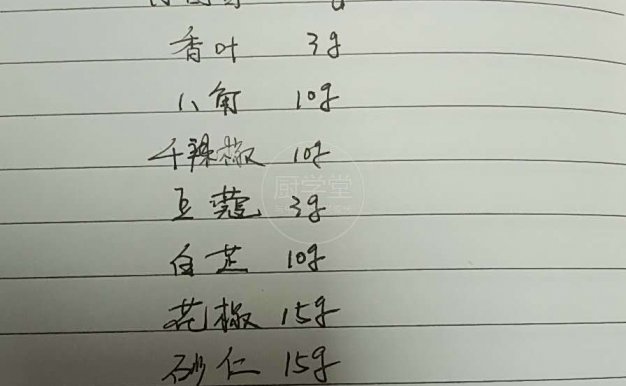 香叶 3g
八角 10g
干辣椒 10g
豆蔻 3g
白芷 10g
花椒 15g
砂仁 15g
厨学堂